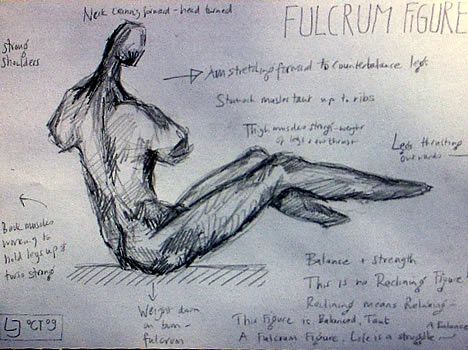 FULCRUM FIGURE
Neck leaning forward - head turned
strong
shoulders
Arm stretching forward to counterbalance legs
Stomach muscles taut up to ribs
Thigh muscles strong - weight
of legs + outthrust
Legs thrusting
outwards
Back muscles
working to
hold legs up &
torso strong
Balance + strength
This is no Reclining Figure.
Reclining means Relaxing -
This Figure is Balanced, Taut
A Balance
A Fulcrum Figure. Life is a struggle -
Weight down
on bum -
fulcrum
LJ OCT 09